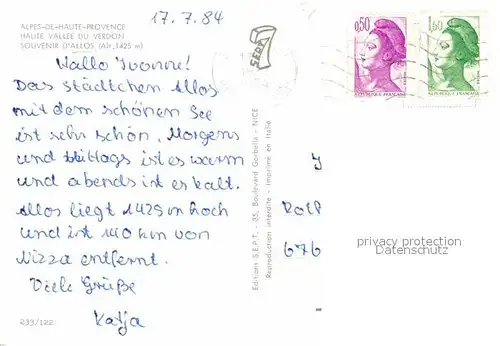 ALPES-DE-HAUTE-PROVENCE
HAUTE VALLÉE DU VERDON
SOUVENIR D'ALLOS (Alt. 1425 m)
17.7.84
Hallo Yvonne!
Das Städtchen Allos
mit dem schönen See
ist sehr schön. Morgens
und Mittags ist es warm
und abends ist es kalt.
Allos liegt 1425 m hoch
und ist 140 km von
Nizza entfernt.
Viele Grüße
Katja
233/122
Editions S.E.P.T. - 35, Boulevard Gorbella - NICE
Reproduction interdite - Imprimé en Italie
SEPT
0,50
REPUBLIQUE FRANÇAISE
1,60
REPUBLIQUE FRANÇAISE
y
676
privacy protection
Datenschutz